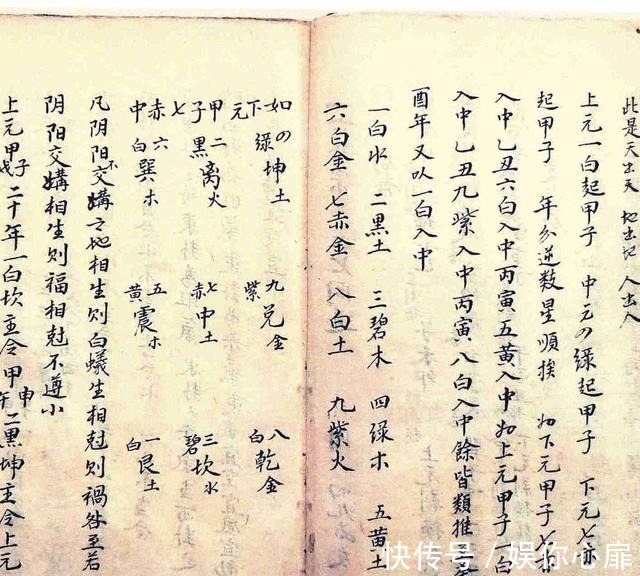 此是天出天 地出地 人出入
上元一白起甲子 中元四绿起甲子 下元七赤
起甲子 年分逆数星順挨 如下元甲子七
入中乙丑六白入中丙寅五黄入中如上元甲子一白
入中乙丑九紫入中丙寅八白入中餘皆類推至
酉年又以一白入中
一白水 二黑土 三碧木 四绿木 五黄土
六白金 七赤金 八白土 九紫火
如下元 四绿坤土 九紫兑金 八白乾金
甲子七 二黑離火 七赤中土 三碧坎水
赤中 六白巽木 五黄震木 一白艮土
凡阴阳不交媾之地相生则白蟻生相尅则禍咎至若
阴阳交媾相生则福相尅不尊小
上元甲子戌二十年一白坎主令甲申午二黑坤主令上元
快传号 / 娱你心扉